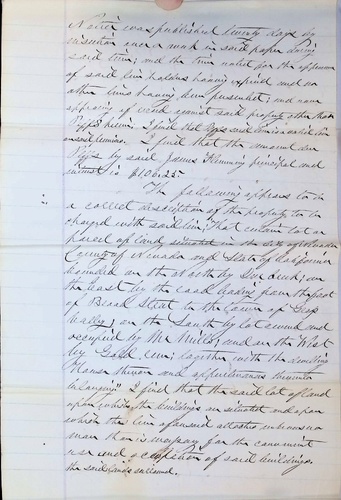 Notice was published twenty days by
insertion once a week in said paper during
said time; and the time noticed for the appearance
of said lien holders having expired and no
other liens having been presented; and none
appearing of record against said property other than
Pipps liens. I find that said lien is a valid lien
on said premises. I find that the amount due
Pipps by said James Fleming principal and
interest is $106.25
The following appears to be
a correct description of the property to be
charged with said lien; That certain lot or
parcel of land situated in the City of Nevada
County of Nevada and State of California
bounded on the North by Deer Creek; on
the East by the road leading from the foot
of Broad Street to the town of Grass
Valley; on the South by lot owned and
occupied by Mr Mills; and on the West
by Gold Run; together with the dwelling
House thereon and appurtenances thereunto
belonging" I find that the said lot of land
upon which the buildings are situated and upon
which the lien aforesaid attaches embraces no
more than is necessary for the convenient
use and occupation of said buildings.
the said lands